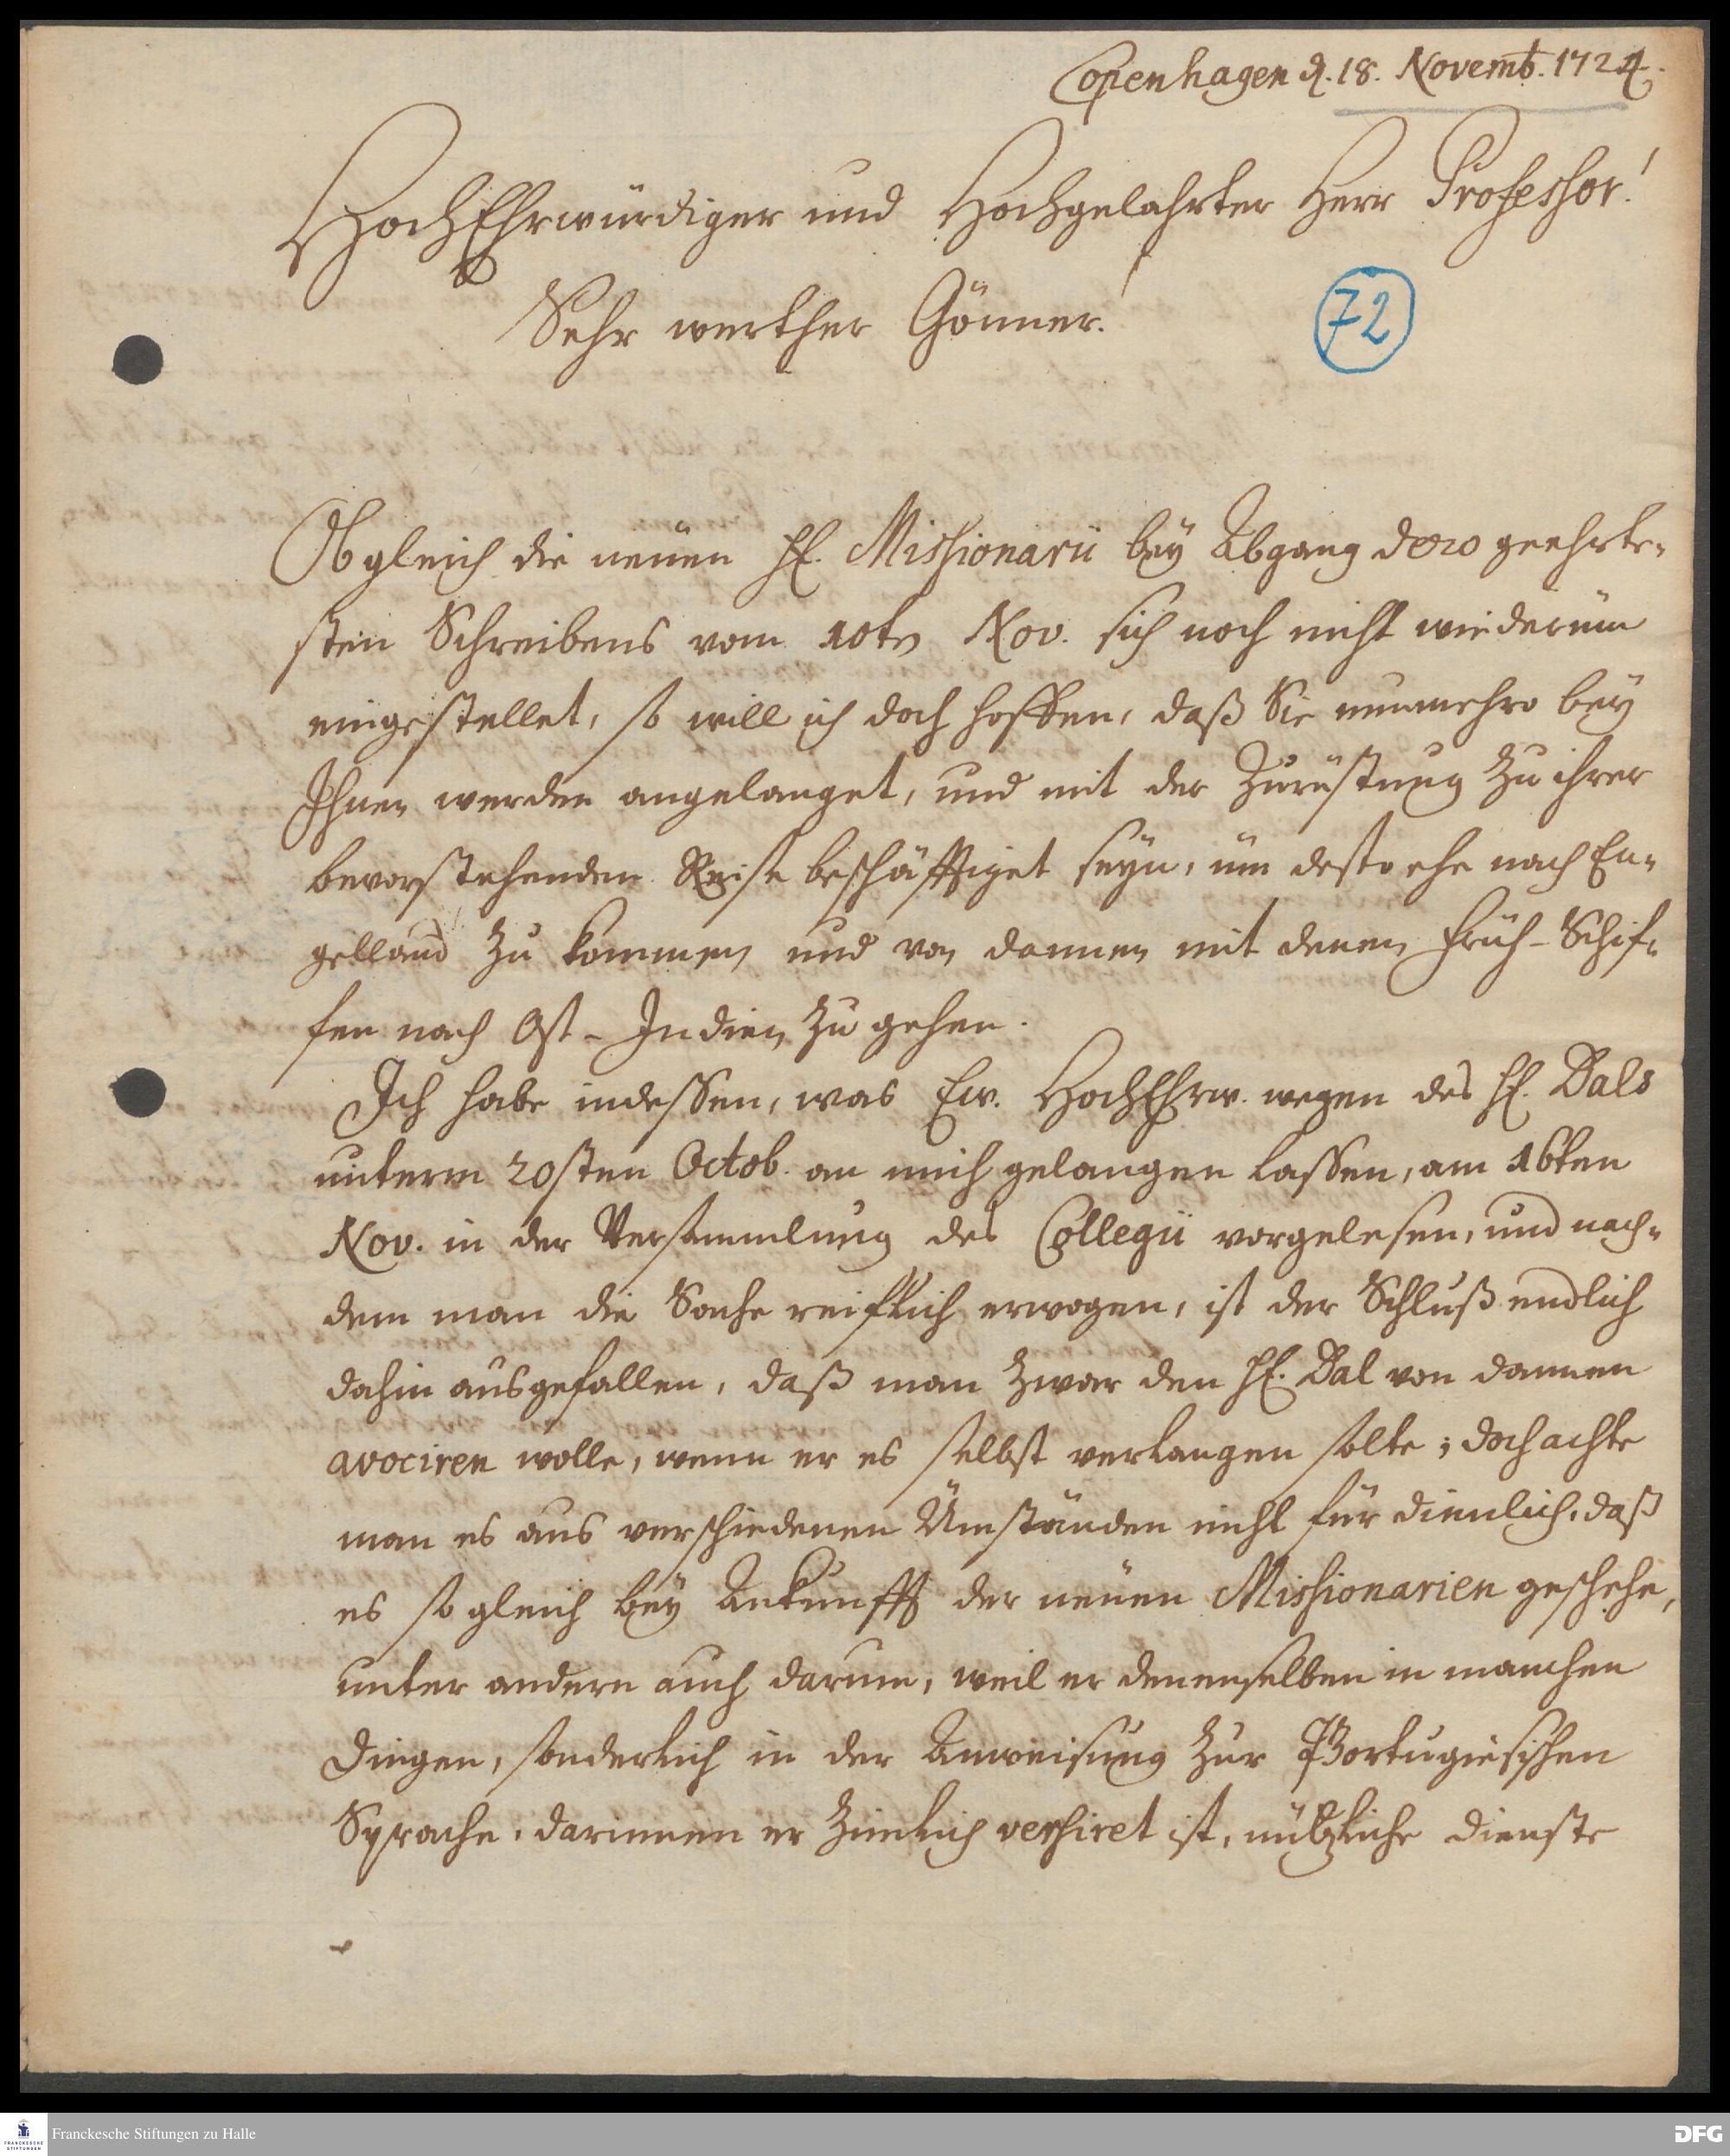 Copenhagen d. 18. Novemb. 1724.
HochEhrwürdiger und Hochgelahrter Herr Professor!
Sehr werther Gönner!
72
Obgleich die neuen H. Missionarii bey Abgang dero geehrte-
sten Schreibens vom 10ten Nov. sich noch nicht wiederüm
eingestellet, so will ich doch hoffen, daß Sie nunmehro bey
Ihnen werden angelanget, und mit der Zurüstung zu ihrer
bevorstehenden Reise beschäfftiget seyn, üm desto ehe nach En-
gelland zu kommen und von dannen mit denen Früh-Schif-
fen nach Ost-Indien zu gehen.
Ich habe indessen, was Ew. HochEhrw. wegen des H. Dals
unterm 20sten Octob. an mich gelangen lassen, am 16ten
Nov. in der Versammlung des Collegii vorgelesen, und nach-
dem man die Sache reifflich erwogen, ist der Schluß endlich
dahin ausgefallen, daß man zwar den H. Dal von dannen
avociren wolle, wenn er es selbst verlangen solte; doch achte
man es aus verschiedenen Ümständen nicht für dienlich, daß
es so gleich bey Ankunfft der neuen Missionarien geschehe,
unter andern auch darum, weil er denenselben in manchen
Dingen, sonderlich in der Anweisung zur Portugiesischen
Sprache, darinnen er zimlich versiret ist, nützliche Dienste
Franckesche Stiftungen zu Halle
FRANCKESCHE
STIFTUNGEN
DFG